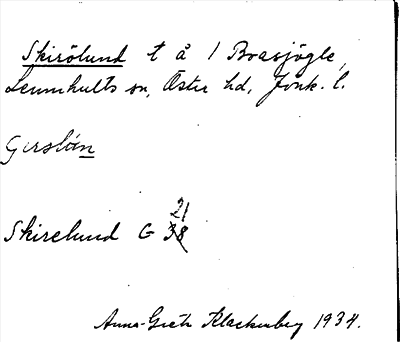 Skirölund t å / Boasjögle,
Lemnhults sn, Öster hd, Jönk. l.
Girslön
21
Skirelund G 38
Anna-Greta Klackenberg 1934.